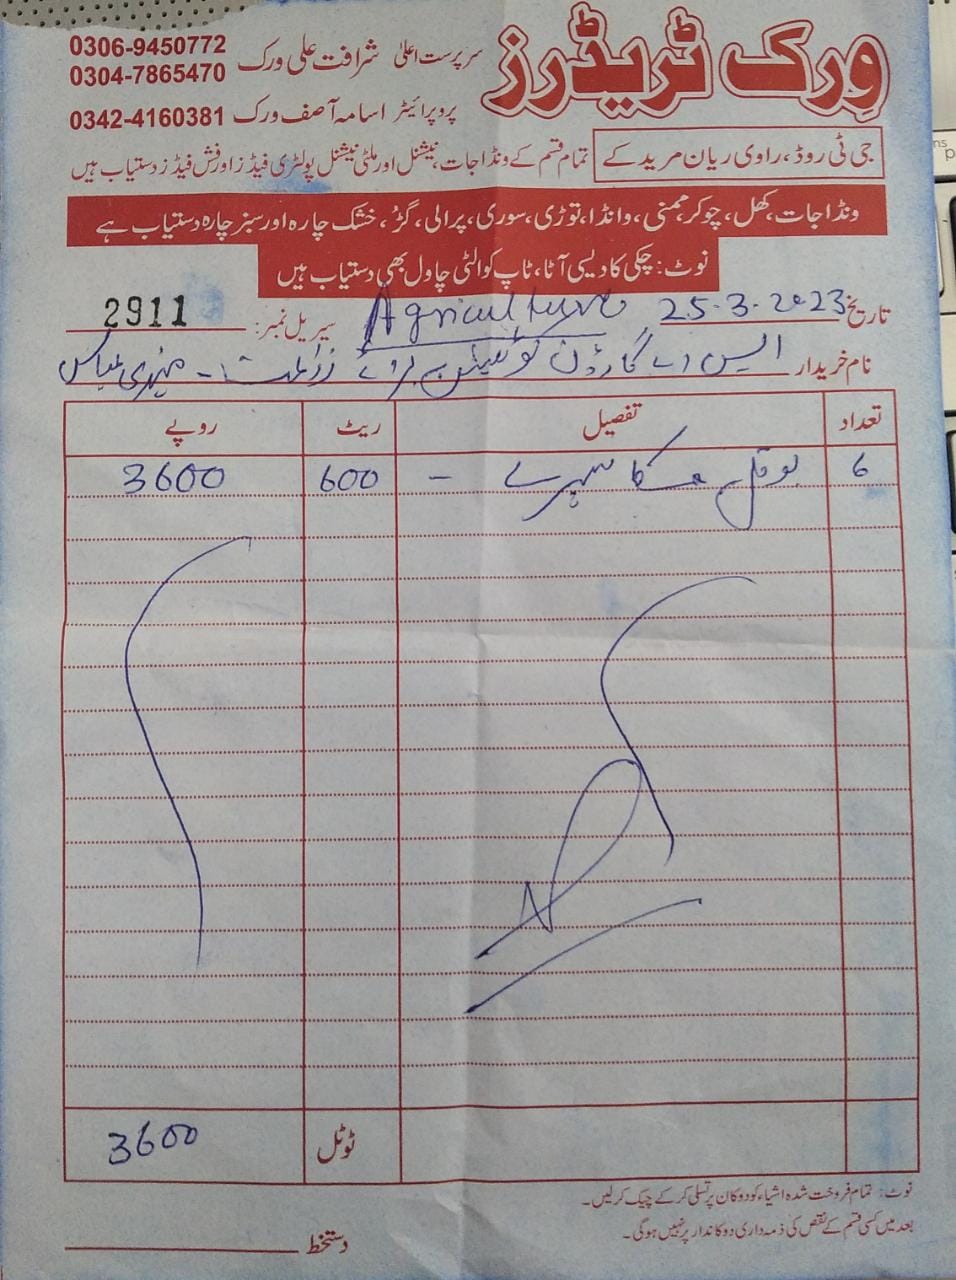 وِرک ٹریڈرز
سرپرست اعلیٰ شرافت علی ورک 0306-9450772
0304-7865470
پروپرائیٹر اسامہ آصف ورک 0342-4160381
جی ٹی روڈ، راوی ریان مریدکے تمام قسم کے ونڈا جات، نیشنل اور ملٹی نیشنل پولٹری فیڈز اور فش فیڈز دستیاب ہیں
ونڈا جات، کھل، چوکر، ممنی، وانڈا، توڑی، سوری، پرالی، گڑ، خشک چارہ اور سبز چارہ دستیاب ہے
نوٹ: چکی کا دیسی آٹا، ٹاپ کوالٹی چاول بھی دستیاب ہیں
تاریخ 25-3-2023 Agriculture سیریل نمبر: 2911
نام خریدار ایس اے گارڈن برائے زراعت -
تعداد تفصیل ریٹ روپے
6 بوتل سپرے - 600 3600
ٹوٹل 3600
نوٹ: تمام فروخت شدہ اشیاء کو دوکان پر تسلی کر کے چیک کر لیں۔
بعد میں کسی قسم کے نقص کی ذمہ داری دوکاندار پر نہیں ہو گی۔
دستخط